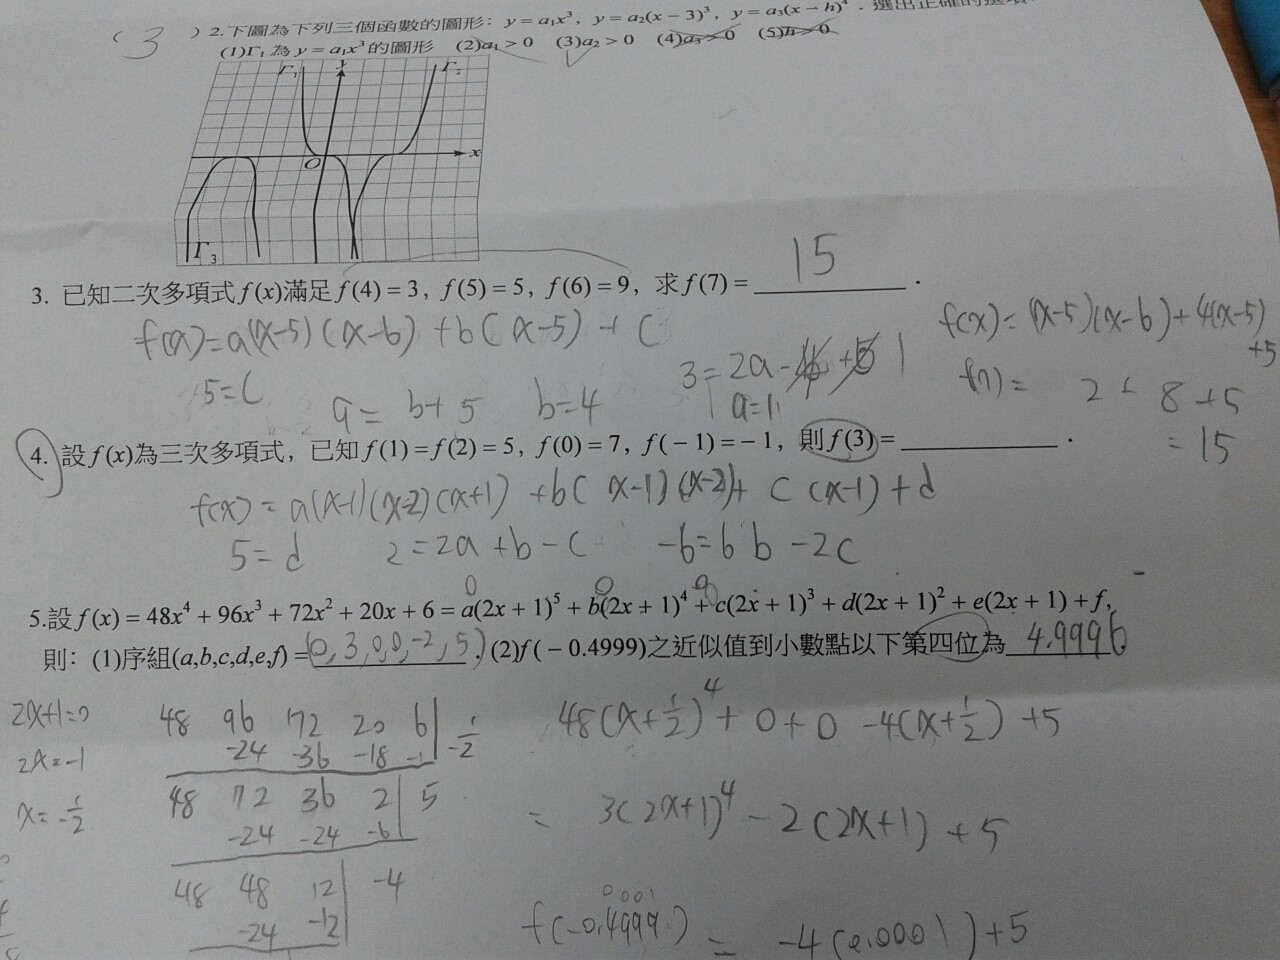 ( 3 ) 2.下圖為下列三個函數的圖形：y = a₁x³, y = a₂(x − 3)³, y = a₃(x − h)⁴．選出正確的選項
(1)Γ₁ 為 y = a₁x³ 的圖形 (2)a₁ > 0 (3)a₂ > 0 (4)a₃ > 0 (5)h > 0
Γ₁ y Γ₂
O x
Γ₃
3. 已知二次多項式 f(x) 滿足 f(4) = 3, f(5) = 5, f(6) = 9, 求 f(7) = 15 .
f(x) = a(x-5)(x-6) + b(x-5) + c
f(x) = (x-5)(x-6) + 4(x-5)
+5
5 = c
9 = b + 5 b = 4
3 = 2a - 1
a = 1
f(7) = 2 + 8 + 5
= 15
4. 設 f(x) 為三次多項式, 已知 f(1) = f(2) = 5, f(0) = 7, f(− 1) = − 1, 則 f(3) = .
f(x) = a(x-1)(x-2)(x+1) + b(x-1)(x-2) + c(x-1) + d
5 = d 2 = 2a + b - c -6 = 6b - 2c
0 0
5.設 f(x) = 48x⁴ + 96x³ + 72x² + 20x + 6 = a(2x + 1)⁵ + b(2x + 1)⁴ + c(2x + 1)³ + d(2x + 1)² + e(2x + 1) + f,
則：(1)序組(a,b,c,d,e,f) = (0, 3, 0, 0, -2, 5) . (2)f (− 0.4999)之近似值到小數點以下第四位為 4.9996
2x+1=0
2x=-1
x=-1/2
48 96 72 20 6 | -1/2
-24 -36 -18 -1
48 72 36 2 | 5
-24 -24 -6
48 48 12 | -4
-24 -12
48(x+1/2)⁴ + 0 + 0 - 4(x+1/2) + 5
= 3(2x+1)⁴ - 2(2x+1) + 5
0.001
f(-0.4999) = -4(0.0001) + 5